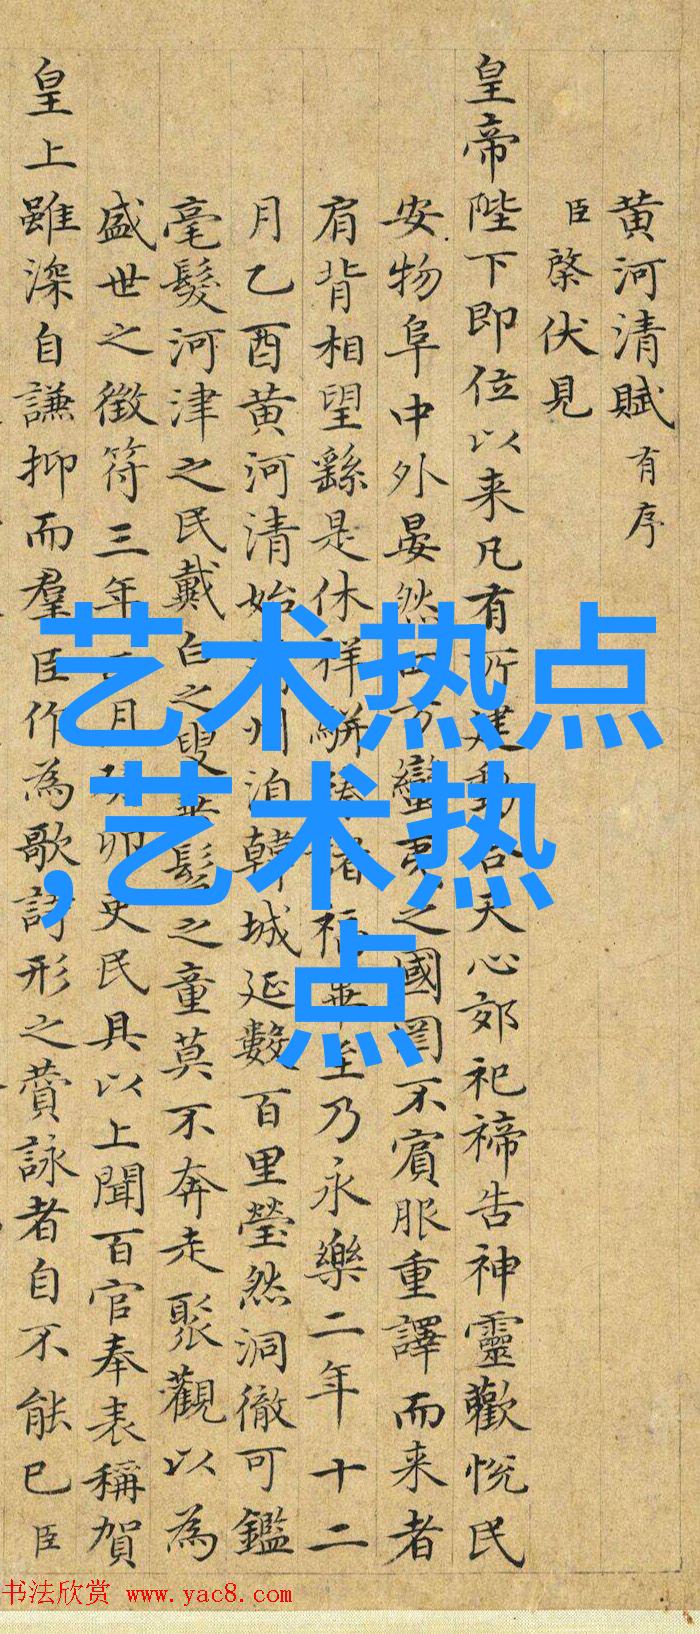 黄河清賦有序
臣棨伏見
皇帝陛下即位以来凡有所建動合天心郊祀禘告神靈歡悦民
安物阜中外晏然四方蠻夷之國罔不賓服重譯而来者
肩背相望繇是休祥駢臻諸福畢至乃永樂二年十二
月乙酉黄河清始州泊韓城延數百里瑩然洞徹可鑑
毫髮河津之民戴白之叟垂髫之童莫不奔走聚觀以為
盛世之徵符三年正月癸卯吏民具以上聞百官奉表稱賀
皇上雖深自謙抑而羣臣作為歌詩形之賛詠者自不能已臣
艺术热点
,艺术热
点
书法欣赏 www.yac8.com